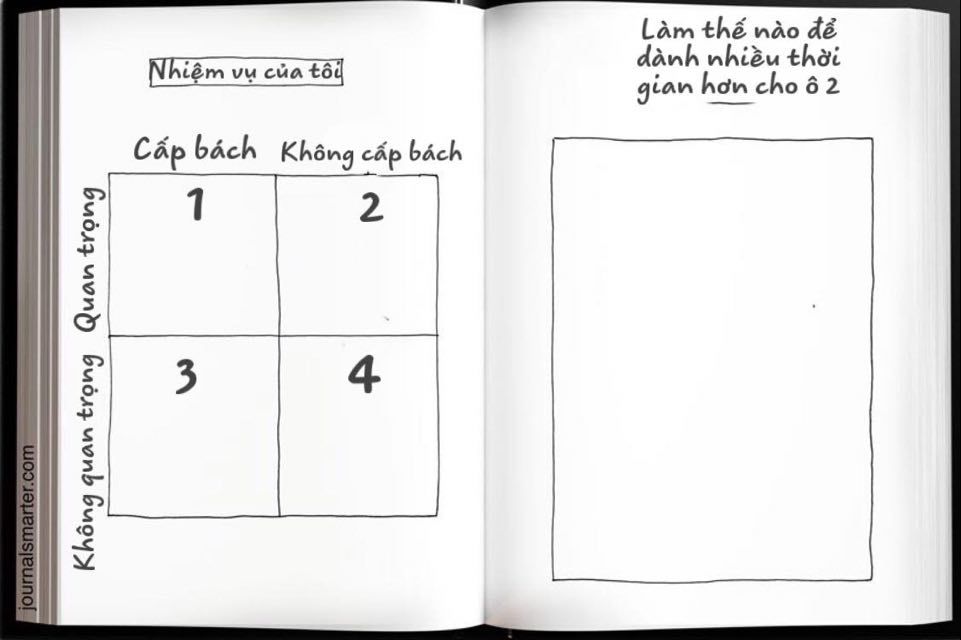 Nhiệm vụ của tôi
Cấp bách
Không cấp bách
Quan trọng
1
2
Không quan trọng
3
4
journalsmarter.com
Làm thế nào để
dành nhiều thời
gian hơn cho ô 2